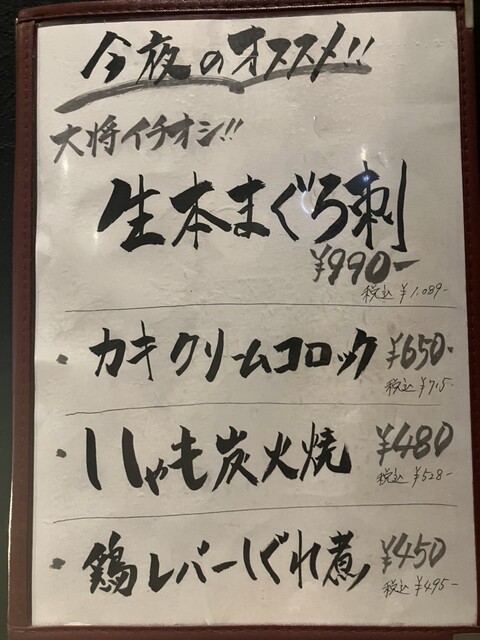 今夜のオススメ!!
大将イチオシ!!
生本まぐろ刺
¥990-
税込 ¥1,089-
・カキクリームコロッケ ¥650-
税込 ¥715-
・ししゃも炭火焼 ¥480
税込 ¥528-
・鶏レバーしぐれ煮 ¥450
税込 ¥495-